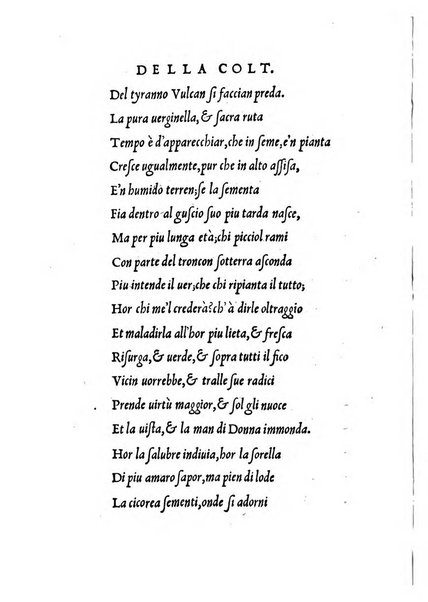 DELLA COLT.
Del tyranno Vulcan ſi faccian preda.
La pura uerginella, & ſacra ruta
Tempo è d'apparecchiar, che in ſeme, e'n pianta
Creſce ugualmente, pur che in alto aſſiſa,
E'n humido terren; ſe la ſementa
Fia dentro al guſcio ſuo piu tarda naſce,
Ma per piu lunga età; chi picciol rami
Con parte del troncon ſotterra aſconda
Piu intende il uer; che chi ripianta il tutto;
Hor chi me'l crederà? ch'à dirle oltraggio
Et maladirla all'hor piu lieta, & freſca
Riſurga, & uerde, & ſopra tutti il fico
Vicin uorrebbe, & tralle ſue radici
Prende uirtù maggior, & ſol gli nuoce
Et la uiſta, & la man di Donna immonda.
Hor la ſalubre indiuia, hor la ſorella
Di piu amaro ſapor, ma pien di lode
La cicorea ſementi, onde ſi adorni